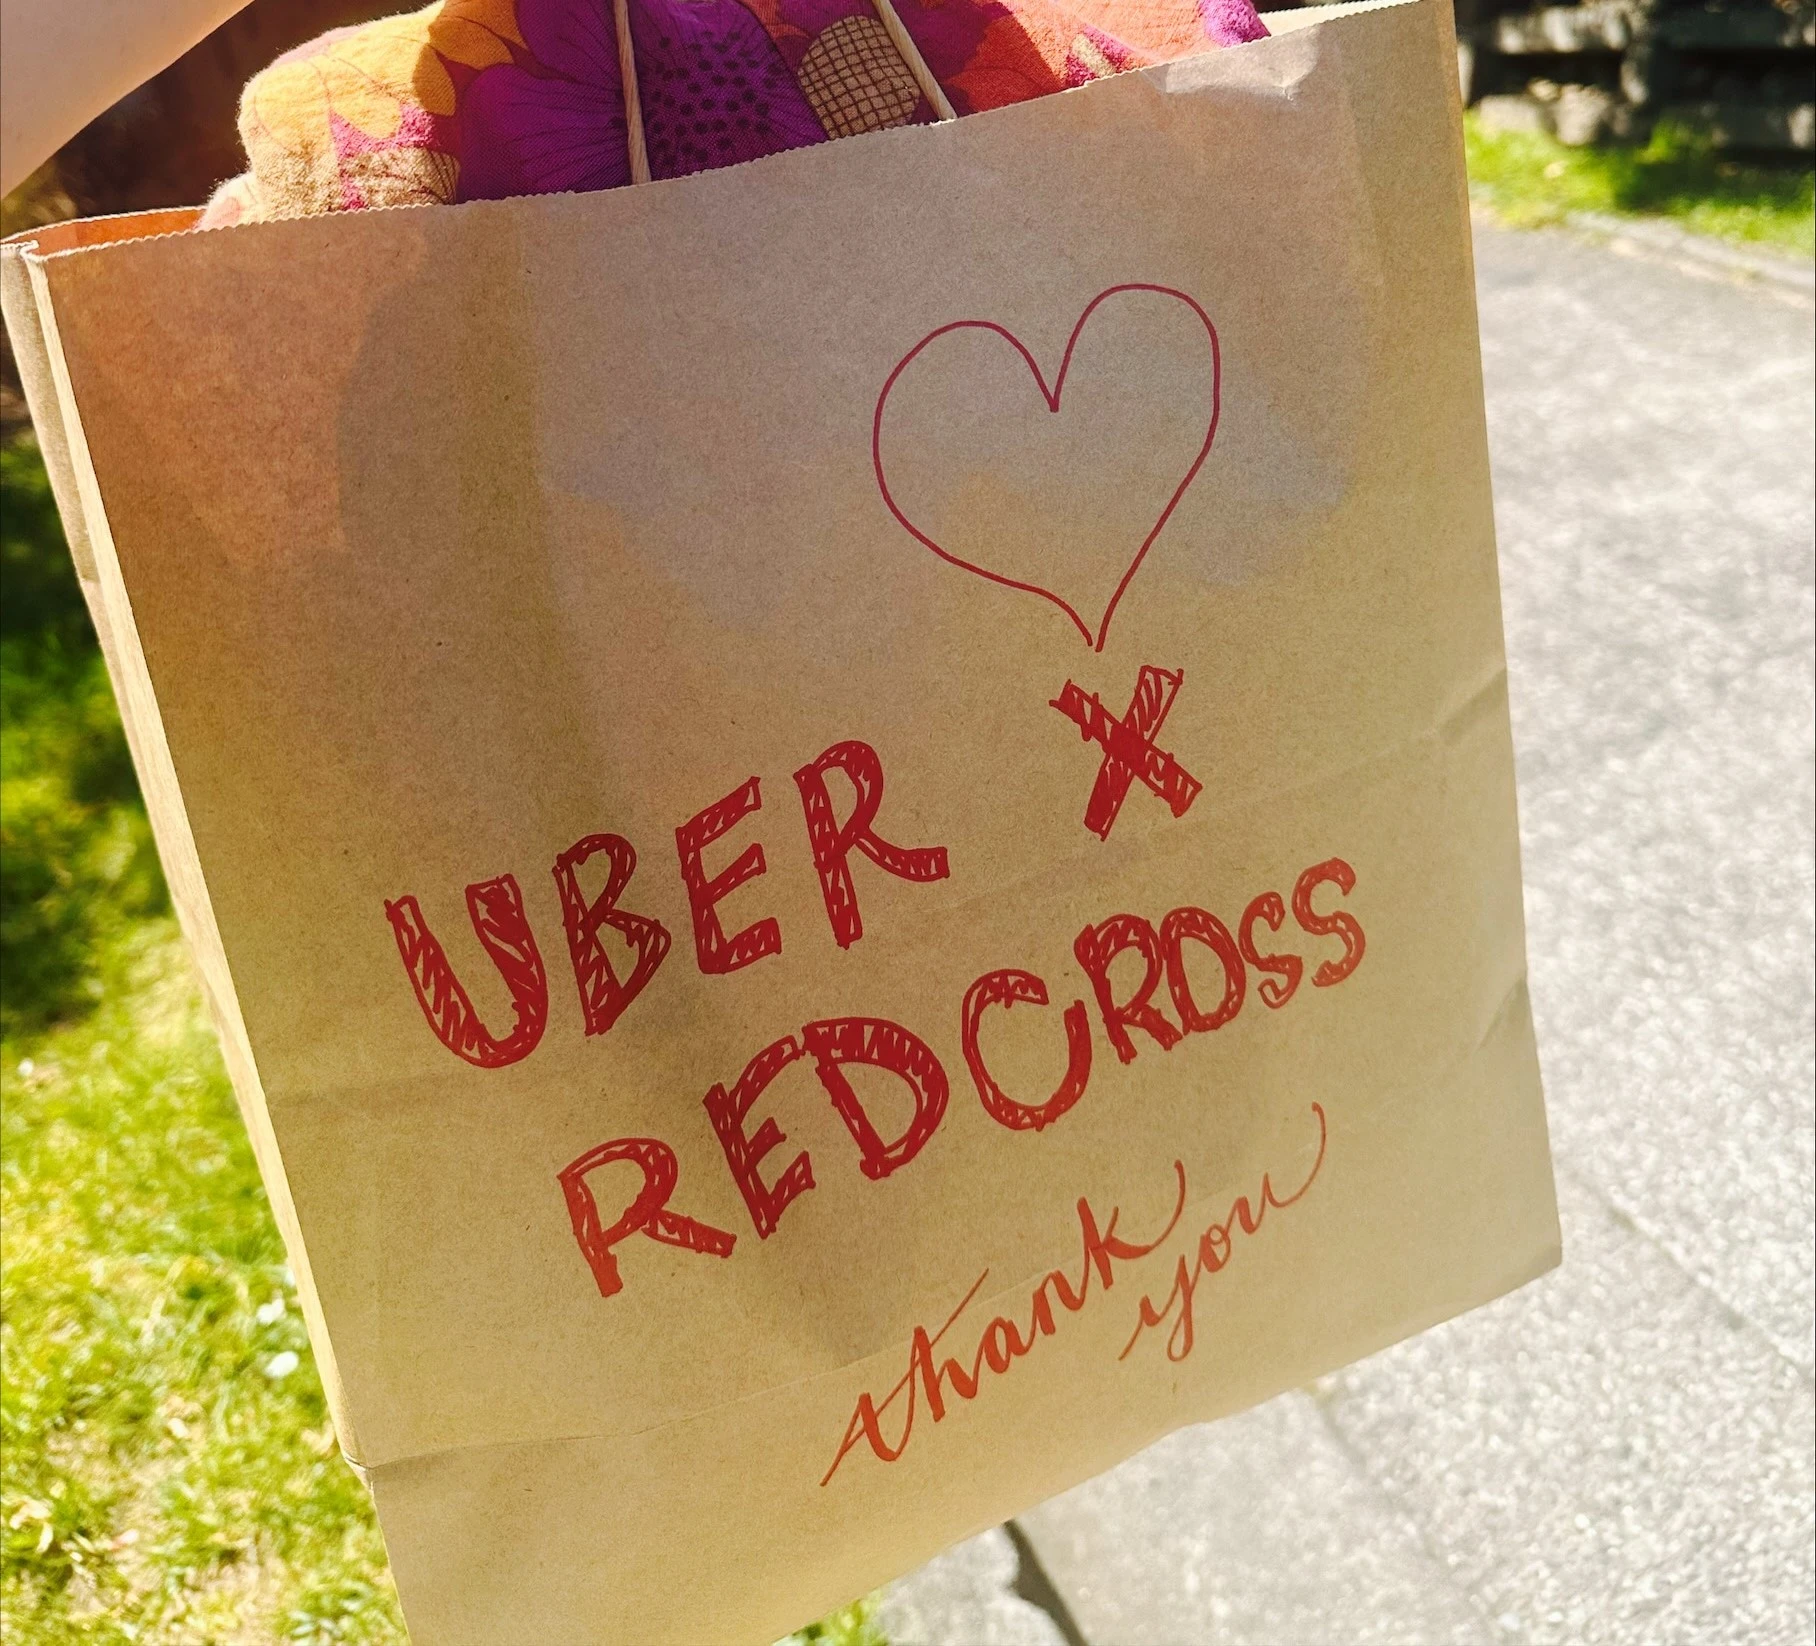 UBER X
REDCROSS
thank
you